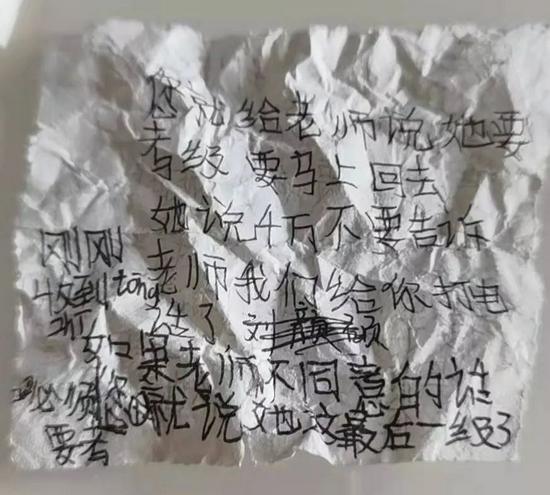 您就给老师说她要
考级 要马上回去
她说千万不要告诉
老师我们给你打电
话了
如果老师不同意的话
您就说她这最后一级了
刚刚
收到tōng
必须
要考